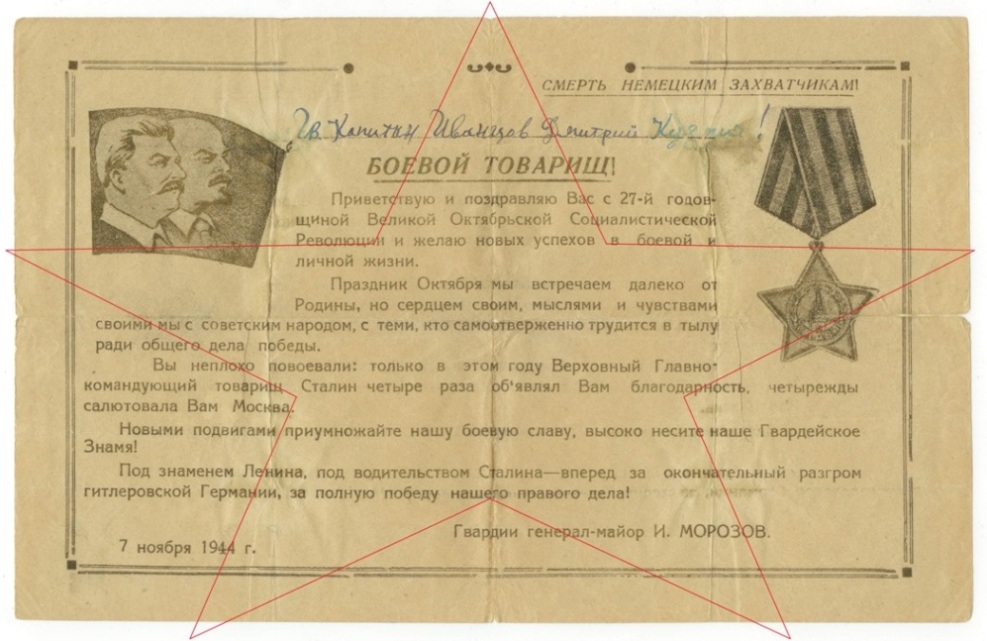 СМЕРТЬ НЕМЕЦКИМ ЗАХВАТЧИКАМ!
Гв Капитан Иванцов Дмитрий !
БОЕВОЙ ТОВАРИЩ!
Приветствую и поздравляю Вас с 27-й годов-
щиной Великой Октябрьской Социалистической
Революции и желаю новых успехов в боевой и
личной жизни.
Праздник Октября мы встречаем далеко от
Родины, но сердцем своим, мыслями и чувствами
своими мы с советским народом, с теми, кто самоотверженно трудится в тылу
ради общего дела победы.
Вы неплохо повоевали: только в этом году Верховный Главно-
командующий товарищ Сталин четыре раза об'являл Вам благодарность, четырежды
салютовала Вам Москва.
Новыми подвигами приумножайте нашу боевую славу, высоко несите наше Гвардейское
Знамя!
Под знаменем Ленина, под водительством Сталина—вперед за окончательный разгром
гитлеровской Германии, за полную победу нашего правого дела!
Гвардии генерал-майор И. МОРОЗОВ.
7 ноября 1944 г.